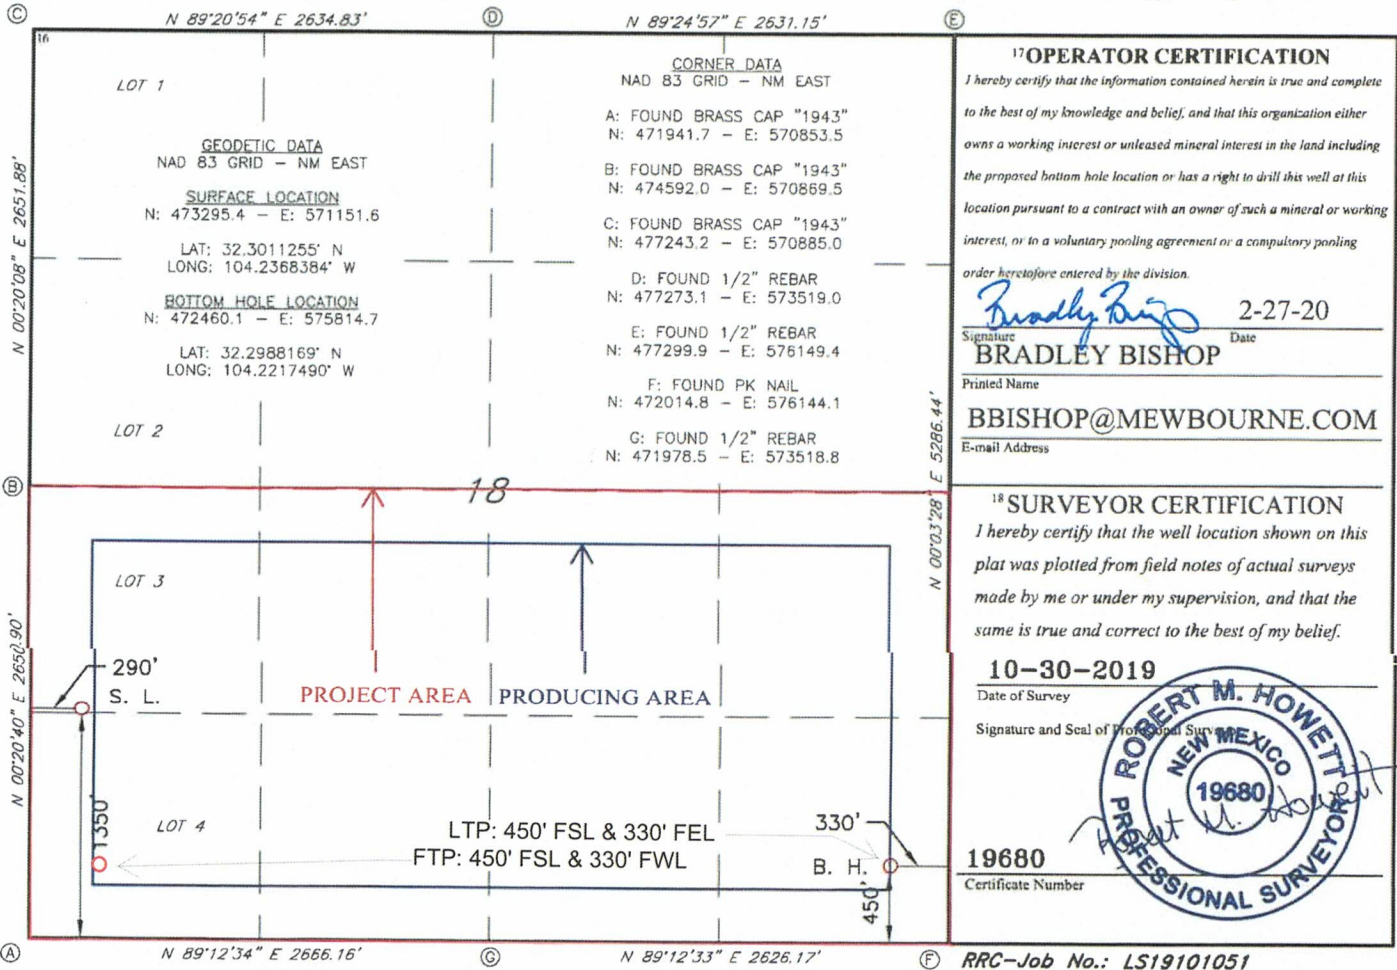 Ⓒ N 89°20'54" E 2634.83' Ⓓ N 89°24'57" E 2631.15' Ⓔ
16
LOT 1
GEODETIC DATA
NAD 83 GRID – NM EAST
SURFACE LOCATION
N: 473295.4 – E: 571151.6
LAT: 32.3011255° N
LONG: 104.2368384° W
BOTTOM HOLE LOCATION
N: 472460.1 – E: 575814.7
LAT: 32.2988169° N
LONG: 104.2217490° W
LOT 2
N 00°20'08" E 2651.88'
CORNER DATA
NAD 83 GRID – NM EAST
A: FOUND BRASS CAP "1943"
N: 471941.7 – E: 570853.5
B: FOUND BRASS CAP "1943"
N: 474592.0 – E: 570869.5
C: FOUND BRASS CAP "1943"
N: 477243.2 – E: 570885.0
D: FOUND 1/2" REBAR
N: 477273.1 – E: 573519.0
E: FOUND 1/2" REBAR
N: 477299.9 – E: 576149.4
F: FOUND PK NAIL
N: 472014.8 – E: 576144.1
G: FOUND 1/2" REBAR
N: 471978.5 – E: 573518.8
N 00°03'28" E 5286.44'
Ⓑ
18
LOT 3
N 00°20'40" E 2650.90'
290'
S. L.
PROJECT AREA
PRODUCING AREA
1350'
LOT 4
LTP: 450' FSL & 330' FEL
FTP: 450' FSL & 330' FWL
330'
B. H.
450'
Ⓐ N 89°12'34" E 2666.16' Ⓖ N 89°12'33" E 2626.17' Ⓕ
17 OPERATOR CERTIFICATION
I hereby certify that the information contained herein is true and complete
to the best of my knowledge and belief, and that this organization either
owns a working interest or unleased mineral interest in the land including
the proposed bottom hole location or has a right to drill this well at this
location pursuant to a contract with an owner of such a mineral or working
interest, or to a voluntary pooling agreement or a compulsory pooling
order heretofore entered by the division.
2-27-20
Signature Date
BRADLEY BISHOP
Printed Name
BBISHOP@MEWBOURNE.COM
E-mail Address
18 SURVEYOR CERTIFICATION
I hereby certify that the well location shown on this
plat was plotted from field notes of actual surveys
made by me or under my supervision, and that the
same is true and correct to the best of my belief.
10-30-2019
Date of Survey
Signature and Seal of Professional Surveyor
ROBERT M. HOWETT
NEW MEXICO
19680
PROFESSIONAL SURVEYOR
Robert M. Howett
19680
Certificate Number
RRC-Job No.: LS19101051